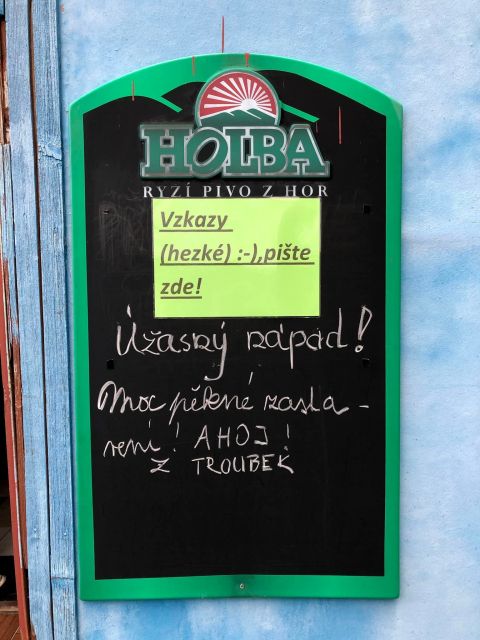 HOLBA
RYZÍ PIVO Z HOR
Vzkazy
(hezké) :-),pište
zde!
Úžasný nápad!
Moc pěkné zasta-
vení! AHOJ!
Z TROUBEK